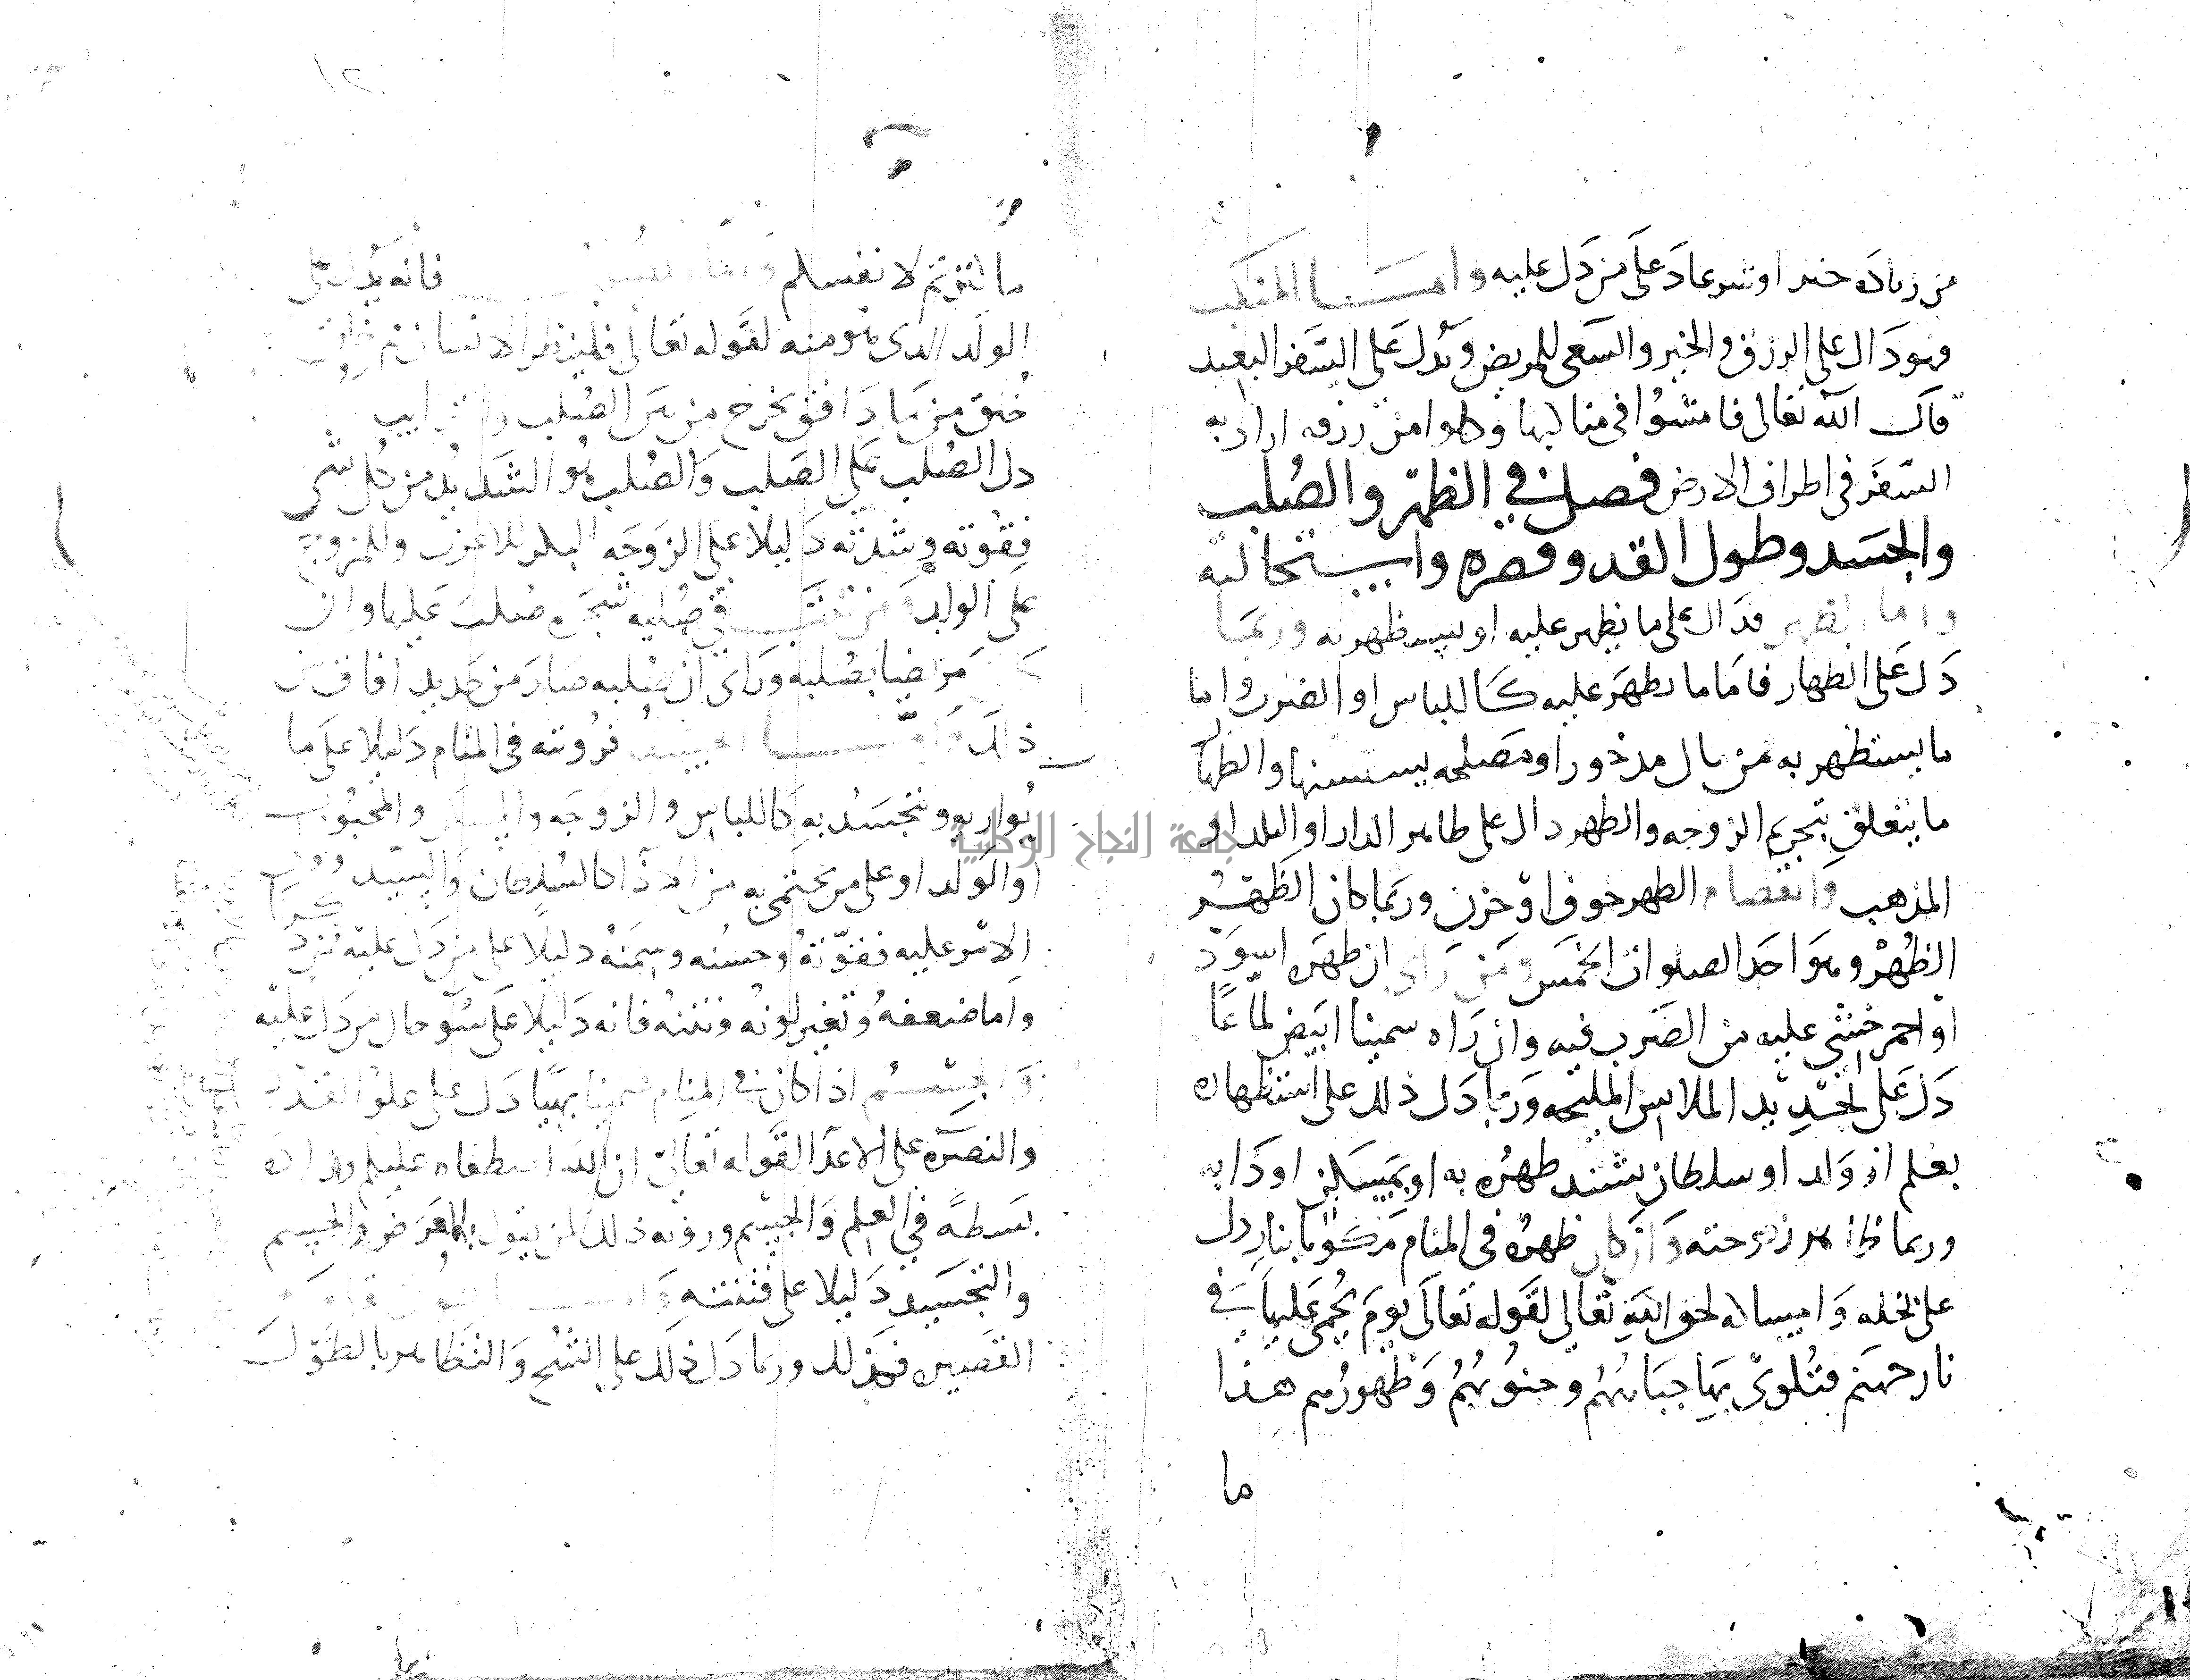 من زيادة خير او شر عاد على من دل عليه واما المنكب
وهو دال على الرزق والخير والسعى للمريض ويدل على السفر البعيد
قال الله تعالى فامشوا فى مناكبها وكلوا من رزقه اراد به
السفر فى اطراف الارض فصل في الظهر والصلب
والجسد وطول القد وقصره واستحالته
واما الظهر فدال على ما يظهر عليه او يستظهر به وربما
دل على الظهار فاما ما يظهر عليه كاللباس او الضرب واما
ما يستظهر به من مال مدخور او مصلحه والظهار
ما يتعلق بتحريم الزوجه والظهر دال على ظاهر الدار او البلد او
المذهب وانقصام الظهر خوف او حزن وربما كان الظهر
الظُهْر وهو احد الصلوات الخمس ومن راى ان ظهره اسود
او احمر خشي عليه من الضرب فيه وان راه سمينا ابيض لماعا
دل على تجديد الملابس المليحه وربما دل ذلك على استظهاره
بعلم او ولد او سلطان يشتد ظهره به او بمسكن او دابه
وربما ظاهر زوجته وان كان ظهره فى المنام مكويا بنار دل
على بخله وامساكه لحق الله تعالى لقوله تعالى يوم يحمى عليها فى
نار جهنم فتكوى بها جباههم وجنوبهم وظهورهم هذا
ما
ما كنزتم لانفسكم فانه يدل على
الولد الذى هو منه لقوله تعالى فلينظر الانسان مم خلق
خلق من ما دافق يخرج من بين الصلب والترايب
دل الصلب على الصلب والصلب هو الشديد من كل شى
فقوته وشدته دليلا على الزوجه البكر للاعزب وللمزوج
على الولد ومن فى صلبه صلب عليها وان
كان مريضا بصلبه وراى ان صلبه صار من حديد افاق من
ذلك واما الجسد فرويته فى المنام دليلا على ما
يواريه ويتجسد به كاللباس والزوجه والمسكن والمحبوب
او الولد او على من يحتمى به من الاذا كالسلطان والسيد
الامر عليه فقوته وحسنه وسمنه دليلا على من دل عليه
واما ضعفه وتغير لونه ونتنه فانه دليلا على سو حال من دل عليه
والجسم اذا كان فى المنام سمينا بهيا دل على علو القدر
والنصره على الاعدا لقوله تعالى ان الله اصطفاه عليكم وزاده
بسطة في العلم والجسم ورويه ذلك لمن يقول بالعرض والجسم
والتجسيد دليلا على فتنته
القصير فكذلك وربما دل ذلك على الشح والتظاهر بالطول
جامعة النجاح الوطنية